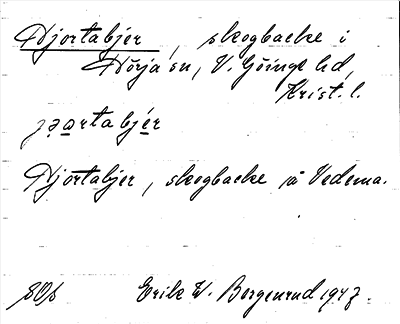 Hjortabjer, skogbacke i
Hörja sn, V. Göinge hd,
Krist. l.
Hjortabjer, skogbacke på Vedema.
Erik W. Borgenrud 1947.